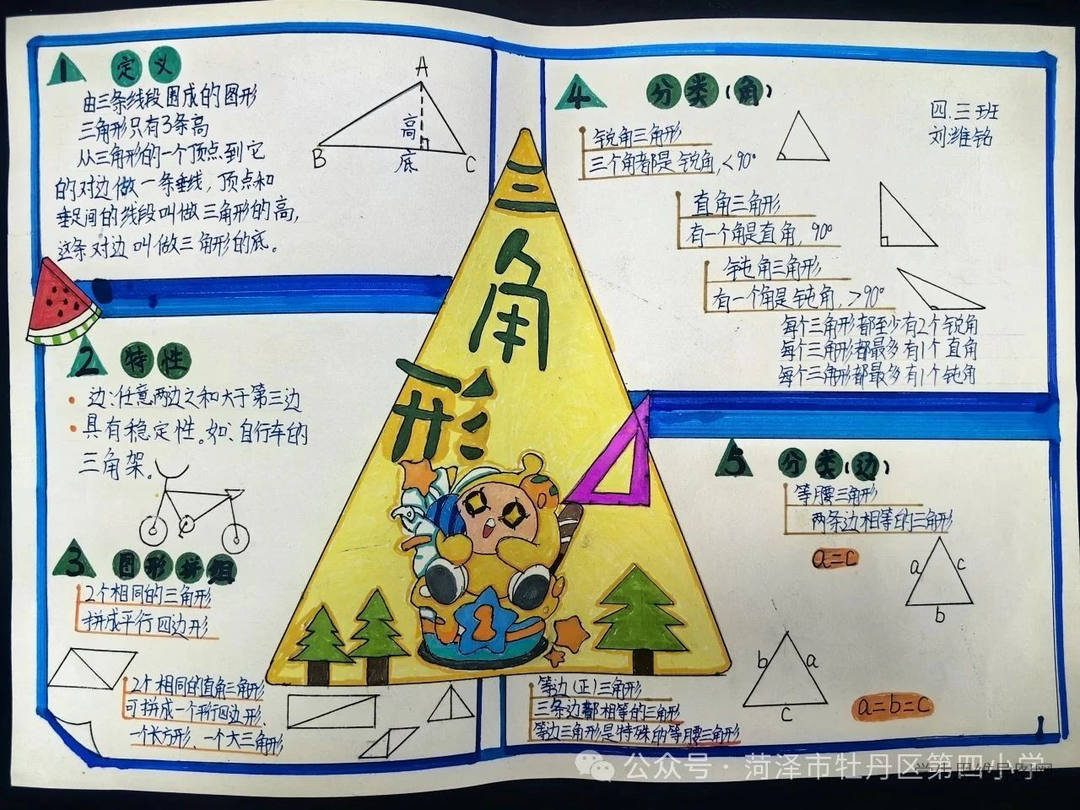 1 定义
由三条线段围成的图形
三角形只有3条高
从三角形的一个顶点到它
的对边做一条垂线，顶点和
垂足间的线段叫做三角形的高，
这条对边叫做三角形的底。
A
B
C
高
底
三角形
2 特性
边：任意两边之和大于第三边
具有稳定性。如、自行车的
三角架。
3 图形拼组
2个相同的三角形
拼成平行四边形
2个相同的直角三角形
可拼成一个平行四边形、
一个长方形、一个大三角形
4 分类（角）
四.三班
刘维铭
锐角三角形
三个角都是锐角，<90°
直角三角形
有一个角是直角，90°
钝角三角形
有一个角是钝角，>90°
每个三角形都至少有2个锐角
每个三角形都最多有1个直角
每个三角形都最多有1个钝角
5 分类（边）
等腰三角形
两条边相等的三角形
a=c
a
c
b
等边（正）三角形
三条边都相等的三角形
等边三角形是特殊的等腰三角形
b
a
c
a=b=c
公众号·菏泽市牡丹区第四小学